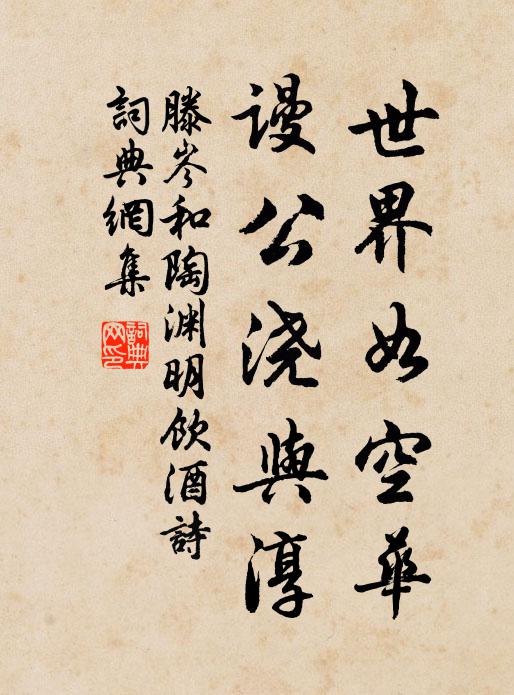 世界如空華
謾公浇與淳
滕岑和陶渊明饮酒詩
詞典網集
詞典网印